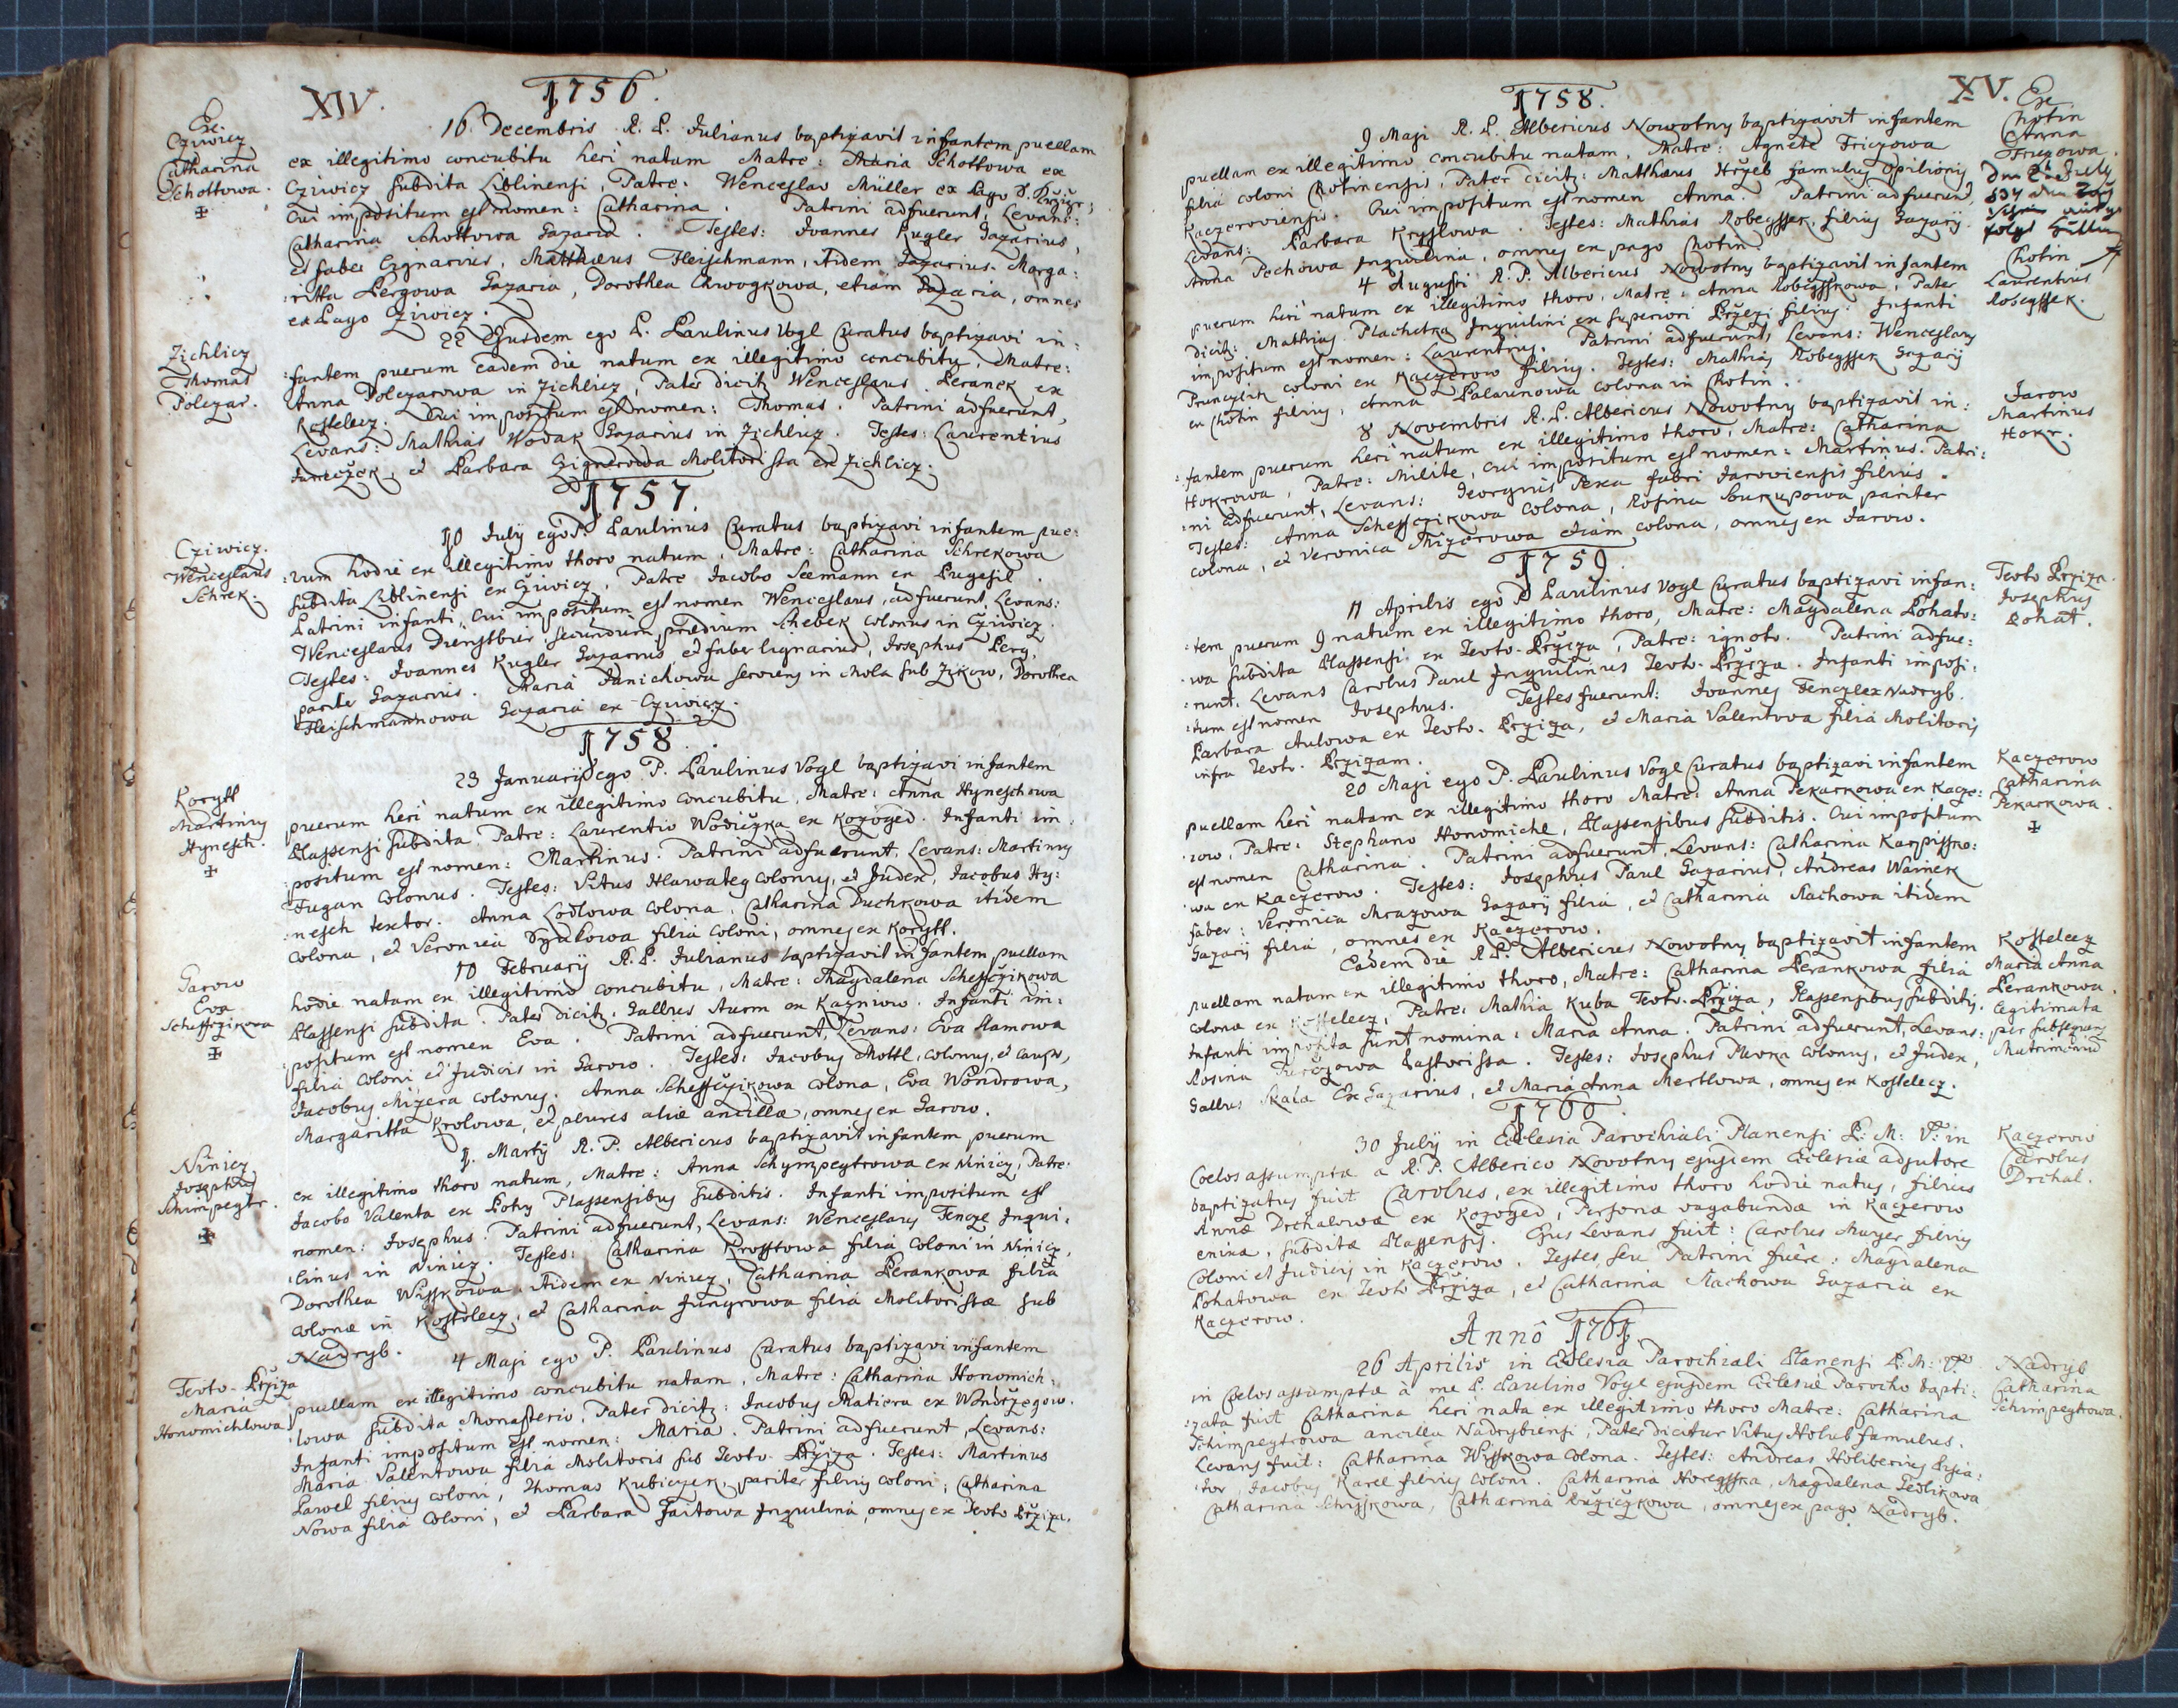 XIV.
1756.
Ex
Cziwicz
Catharina
Schottowa.
16 Decembris R. P. Julianus baptizavit infantem puellam
ex illegitimo concubitu heri natam Matre: Maria Schottowa ex
Cziwicz subdita Liblinensi, Patre: Wenceslao Müller ex Pago
Cui impositum est nomen: Catharina. Patrini adfuerunt, Levans:
Catharina Schottowa Gazaria. Testes: Joannes Kugler Gazarius,
et faber lignarius, Matthæus Fleischmann, itidem Gazarius. Marga:
:ritta Pergowa Gazaria, Dorothea etiam Gazaria, omnes
ex Pago Cziwicz.
Zichlicz
Thomas
Polczar.
22 Ejusdem ego P. Paulinus Vogl Curatus baptizavi in:
:fantem puerum eadem die natum ex illegitimo concubitu, Matre:
Anna Polczarowa in Zichlicz, Pater dicitz Wenceslaus Beranek ex
Kostelecz. Cui impositum est nomen: Thomas. Patrini adfuerunt,
Levans: Mathias Wodak Gazarius in Zichlicz. Testes: Laurentius
Janeczek, et Barbara Molitorissa ex Zichlicz.
1757.
Cziwicz.
Wenceslaus
Schrek.
10 July ego P. Paulinus Curatus baptizavi infantem pue:
:rum hodie ex illegitimo thoro natum, Matre: Catharina Schrekowa
subdita Liblinensi ex Cziwicz, Patre Jacobo Seemann ex
Patrini infanti, cui impositum est nomen Wenceslaus, adfuerunt Levans:
Wenceslaus Dienstbier, secundum prædium Schebek colonus in Cziwicz.
Testes: Joannes Kugler Gazarius, et faber lignarius, Josephus Perg,
pariter Gazarius. Maria Janichowa serviens in Mola sub Zikow, Dorothea
Fleischmannowa Gazaria ex Cziwicz.
1758.
Korytt
Martinus
Hynesch.
23 Januarij ego P. Paulinus Vogl baptizavi infantem
puerum heri natum ex illegitimo concubitu, Matre: Anna Hyneschowa
Plassensi subdita. Patre: Laurentio Wodiczka ex Kozoged. Infanti im:
:positum est nomen: Martinus. Patrini adfuerunt, Levans: Martinus
Fugan Colonus. Testes: Vitus Hlawateg colonus, et Judex, Jacobus Hy:
:nesch textor. Anna Lodlowa colona, Catharina Duchkowa itidem
colona, et Veronica filia coloni, omnes ex Korytt.
Jarow
Eva
Scheffczikowa
10 Februarij R. P. Julianus baptizavit infantem puellam
hodie natam ex illegitimo concubitu, Matre: Magdalena Scheffczikowa
Plassensi subdita. Pater dicitz: Gallus Aurm ex Kazniow. Infanti im:
:positum est nomen Eva. Patrini adfuerunt, Levans: Eva Slamowa
filia coloni et Judicis in Jarow. Testes: Jacobus Mottl, colonus, et caupo,
Jacobus Mizera colonus. Anna Scheffczikowa colona, Eva Wondrowa,
Margaritta Krolowa, et plures aliæ ancillæ, omnes ex Jarow.
Ninicz
Josephus
Schimpegtr.
1. Martij R. P. Albericus baptizavit infantem puerum
ex illegitimo thoro natum, Matre: Anna Schympegtrowa ex Ninicz, Patre:
Jacobo Valenta ex Lohy Plassensibus subditis. Infanti impositum est
nomen: Josephus. Patrini adfuerunt, Levans: Wenceslaus Tencze Inqui:
:linus in Ninicz. Testes: Catharina Krofftowa filia coloni in Ninicz,
Dorothea Wiffkowa itidem ex Ninicz, Catharina Berankowa filia
colonæ in Kostelecz, et Catharina Jungrowa filia Molitorissæ sub
Nadryb.
Teuto-Brziza
Maria
Honomichlowa
4 Maji ego P. Paulinus Curatus baptizavi infantem
puellam ex illegitimo concubitu natam, Matre: Catharina Honomich:
:lowa subdita Monasterio, Pater dicitz: Jacobus Matiera ex
Infanti impositum est nomen: Maria. Patrini adfuerunt, Levans:
Maria Valentowa filia Molitoris sub Teuto-Brziza. Testes: Martinus
Pawel filius coloni, Thomas Kubiczek, pariter filius coloni, Catharina
Nowa filia coloni, et Barbara Inquilina, omnes ex Teuto-Brziza.
XV.
1758.
Ex
Chotin
Anna
Friczowa.
9 Maji R. P. Albericus Nowotny baptizavit infantem
puellam ex illegitimo concubitu natam, Matre: Agnete Friczowa
filia coloni Chotinensis, Pater dicitz: Matthæus Hrzeb famulus Opilionis
Kaczerowiensis. Cui impositum est nomen Anna. Patrini adfuerunt,
Levans: Barbara Kryslowa. Testes: Mathias Robegssek, filius Gazarij.
Anna Pechowa Inquilina, omnes ex pago Chotin.
Chotin
Laurentius
Robegssek.
4 Augusti R. P. Albericus Nowotny baptizavit infantem
puerum heri natum ex illegitimo thoro, Matre: Anna Robegsskowa, Pater
dicitz: Mathias Plachetka Inquilini ex superiori Brzizi filius: Infanti
impositum est nomen: Laurentius. Patrini adfuerunt, Levans: Wenceslaus
coloni ex Kaczerow filius. Testes: Mathias Robegssek Gazarij
ex Chotin filius, Anna Palarunowa colona in Chotin.
Jarow
Martinus
Hokr.
8 Novembris R. P. Albericus Nowotny baptizavit in:
:fantem puerum heri natum ex illegitimo thoro, Matre: Catharina
Hokrowa, Patre: Milite, cui impositum est nomen: Martinus. Patri:
:ni adfuerunt, Levans: Georgius Pexa fabri Jarowiensis filius.
Testes: Anna Scheffczikowa colona, Rosina Soukupowa pariter
colona, et Veronica Mizerowa etiam colona, omnes ex Jarow.
1759.
Teuto Brziza.
Josephus
Bohat.
11 Aprilis ego P. Paulinus Vogl Curatus baptizavi infan:
:tem puerum 9 natum ex illegitimo thoro, Matre: Magdalena Bohato:
:wa subdita Plassensi ex Teuto-Brziza, Patre: ignoto. Patrini adfue:
:runt, Levans Carolus Paul Inquilinus Teuto-Brziza. Infanti imposi:
:tum est nomen Josephus. Testes fuerunt: Joannes Tenczl ex Nadryb.
Barbara Aulowa ex Teuto-Brziza, et Maria Valentova filia Molitoris
infra Teuto-Brzizam.
Kaczerow
Catharina
Pekarkowa.
20 Maji ego P. Paulinus Vogl Curatus baptizavi infantem
puellam heri natam ex illegitimo thoro Matre: Anna Pekarkowa ex Kacze:
:row, Patre: Stephano Honomichl, Plassensibus subditis. Cui impositum
est nomen Catharina. Patrini adfuerunt, Levans: Catharina Karpissko:
:wa ex Kaczerow. Testes: Josephus Paul Gazarius, Andreas Wainek
faber: Veronica Mrazowa Gazarij filia, et Catharina Machowa itidem
Gazarij filia, omnes ex Kaczerow.
Kostelecz
Maria Anna
Berankowa.
legitimata
per subsequens
Matrimonium
Eadem die R. P. Albericus Nowotny baptizavit infantem
puellam natam ex illegitimo thoro, Matre: Catharina Berankowa filia
colonæ ex Kostelecz, Patre: Mathia Kuba Teuto-Brziza, Plassensibus subditis.
Infanti imposita sunt nomina: Maria Anna. Patrini adfuerunt, Levans:
Rosina Pastorissa. Testes: Josephus colonus, et Judex,
Gallus Skala Ex Gazarius, et Maria Anna Mertlowa, omnes ex Kostelecz.
1760.
Kaczerow
Carolus
Drchal.
30 July in Ecclesia Parochiali Planensi B: M: V: in
Coelos assumptæ a R. P. Alberico Novotny ejusdem Ecclesiæ adjutore
baptizatus fuit Carolus, ex illegitimo thoro hodie natus, filius
Annæ Drchalowæ ex Kozoged, Personæ vagabundæ in Kaczerow
enixæ, subditæ Plassensis. Ejus Levans fuit: Carolus Mayer filius
Coloni et Judicis in Kaczerow. Testes, seu Patrini fuêre: Magdalena
Bohatowa ex Teuto Brziza, et Catharina Machowa Gazaria ex
Kaczerow.
Annô 1761.
Nadryb
Catharina
Schimpegtrowa.
26 Aprilis in Ecclesia Parochiali Planensi B: M: V:
in Coelos assumptæ à me P. Paulino Vogl ejusdem Ecclesiæ Parocho bapti:
:zata fuit Catharina heri nata ex illegitimo thoro Matre: Catharina
Schimpegtrowa ancilla Nadrybiensi, Pater dicitur Vitus Holub famulus.
Levans fuit: Catharina Wysskowa colona. Testes: Andreas Holiberius
Jacobus Karel filius coloni. Catharina Magdalena Tedlikowa
Catharina Schisskowa, Catharina Ruziczkowa, omnes ex pago Nadryb.